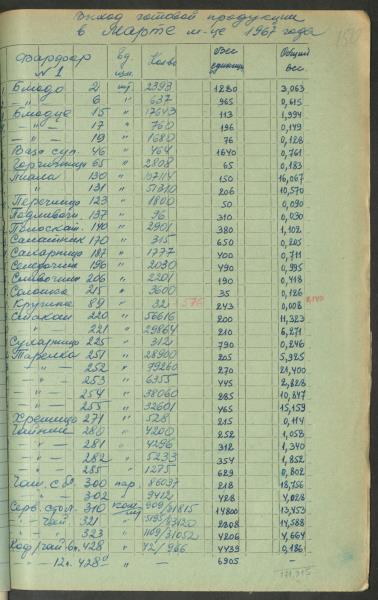 Выход готовой продукции
в Марте м-це 1967 года
Фарфор Ед. Кол-во Вес Общий
N 1 изм. единицы вес.
Блюдо 2 шт 2393 1280 3,063
— " — 6 " 637 965 0,615
Блюдце 15 " 17643 113 1,994
— " — 17 " 760 196 0,149
— " — 19 " 1680 76 0,128
Ваза суп. 46 " 464 1640 0,761
Горчичница 65 " 2808 65 0,183
Пиала 130 " 107114 150 16,067
131 " 51310 206 10,570
Перечница 123 " 1800 50 0,090
137 " 96 310 0,030
Полоскат. 140 " 2901 380 1,102
Салатник 170 " 315 650 0,205
Сахарница 187 " 1777 400 0,711
Селедочник 196 " 2030 490 0,995
Сливочник 206 " 2201 190 0,418
Солонка 215 " 3600 35 0,126
Кружка 89 " 32 576 243 0,008 0,140
Стакан 220 " 56616 200 11,323
— " — 221 " 29864 210 6,271
Сухарница 225 " 312 790 0,246
Тарелка 251 " 28900 205 5,925
— " — 252 " 79260 270 21,400
— " — 253 " 6355 445 2,828
— " — 254 " 38060 285 10,847
— " — 255 " 32601 465 15,159
Хренница 271 " 528 215 0,114
Чайник 280 " 4200 252 1,058
— " — 281 " 4296 312 1,340
— " — 282 " 5233 354 1,852
— " — 285 " 1275 629 0,802
Чаш. с бл. 300 пар. 86037 218 18,756
— " — 302 " 9412 428 4,028
Серв. стол. 310 909/31815 14800 13,453
— " — чай. 321 " 5195/93120 2808 14,588
— " — 323 " 1109/31052 4206 4,664
428 " 42/966 4439 0,186
— " — 12п. 428а " — 6905 —